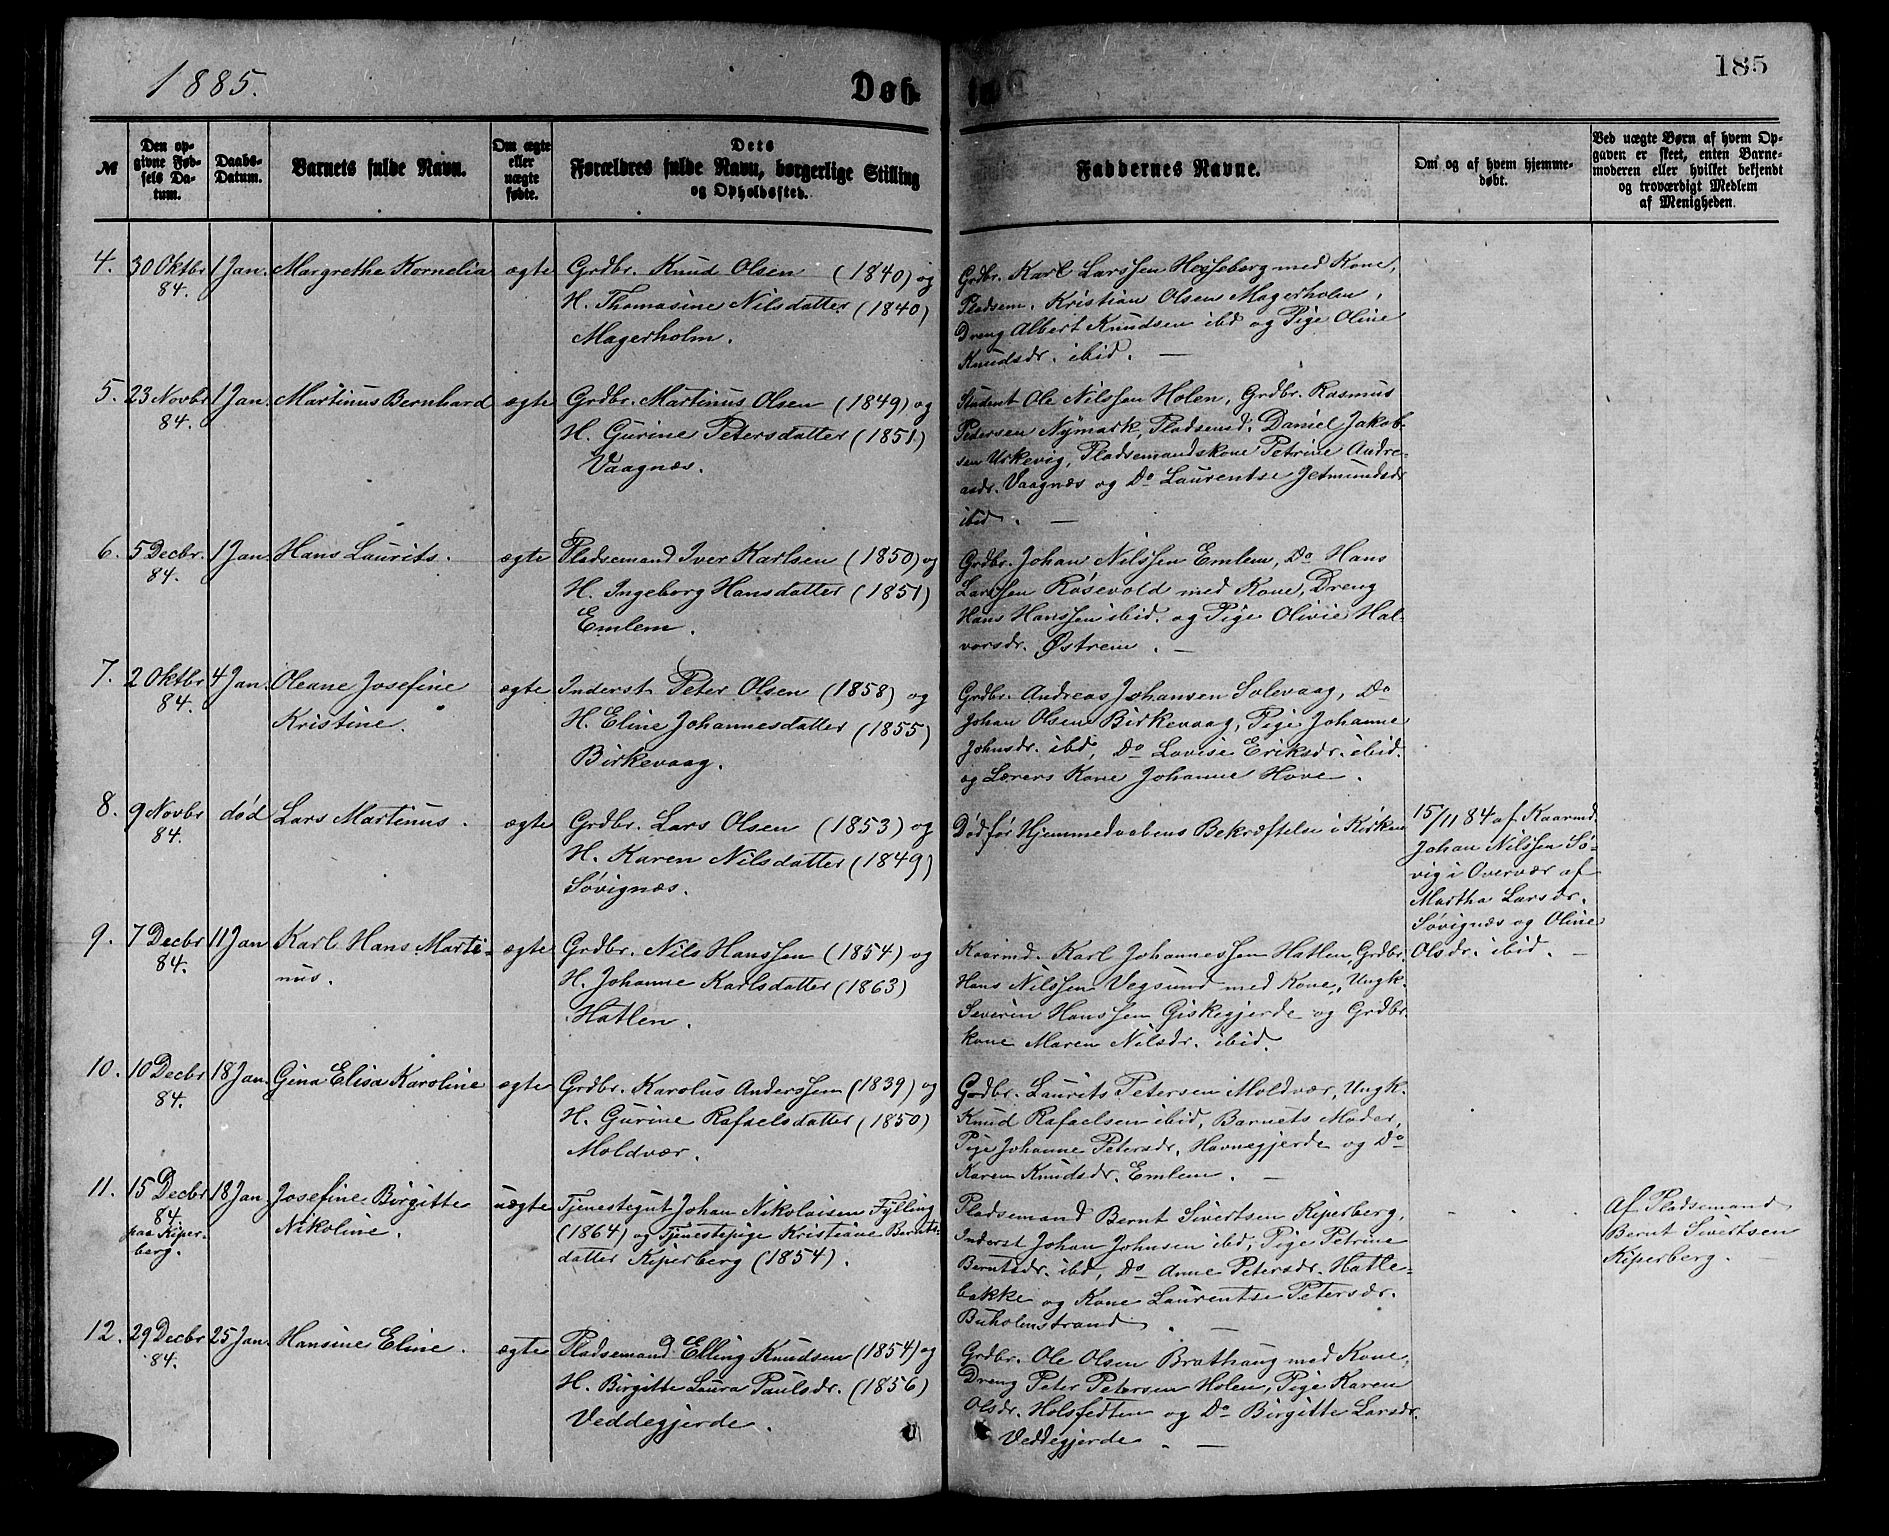 1885.
Døb-
185
№
Den op-
givne Fød-
sels Da-
tum.
Daabs-
Datum.
Barnets fulde Navn.
Om ægte
eller
uægte
fødte.
Dets
Forældres fulde Navn, borgerlige Stilling
og Opholdssted.
Faddernes Navne.
Om og af hvem hjemme-
døbt.
Ved uægte Børn af hvem Op-
gaven er skeet, enten Barne-
moderen eller hvilket bekjendt
og troværdigt Medlem
af Menigheden.
4.
30 Oktbr
84.
1 Jan.
Margrethe Kornelia
ægte
Grdbr. Knud Olsen (1840) og
H. Thomasine Nilsdatter (1840)
Magerholm.
Grdbr. Karl Larssen Hesseberg med Kone,
Pladsem. Kristian Olsen Magerholm,
Dreng Albert Knudsen ibd og Pige Oline
Knudsdr. ibid. —
5.
23 Novbr
84.
1 Jan.
Martinus Bernhard
ægte
Grdbr. Martinus Olsen (1849) og
H. Gurine Petersdatter (1851)
Vaagnæs.
Student Ole Nilssen Holen, Grdbr. Rasmus
Pedersen Nymark, Pladsemd. Daniel Jakob-
sen Urkevig, Pladsemandskone Petrine Andre-
asdr. Vaagnæs og Do Laurentse Jetmundsdr
ibid. —
6.
5 Decbr.
84.
1 Jan
Hans Laurits.
ægte
Pladsemand Iver Karlsen (1850) og
H. Ingeborg Hansdatter (1851)
Emlem.
Grdbr. Johan Nilssen Emlem, Do Hans
Larssen Røsevold med Kone, Dreng
Hans Hanssen ibid. og Pige Olivie Hal-
vorsdr. Østrem. —
7.
2 Oktbr
84.
4 Jan.
Oleane Josefine
Kristine.
ægte
Inderst Peter Olsen (1858) og
H. Eline Johannesdatter (1855)
Birkevaag.
Grdbr. Andreas Johansen Solevaag, Do
Johan Olsen Birkevaag, Pige Johanne
Johnsdr. ibd, Do Lovise Eriksdr. ibid.
og Lærers Kone Johanne Hove.
8.
9 Novbr
84.
død
Lars Martinus.
ægte
Grdbr. Lars Olsen (1853) og
H. Karen Nilsdatter (1849)
Søvignæs.
Død før Hjemmedaabens Bekræftelse i Kirken
15/11 84 af Kaarmd.
Johan Nilssen Sø-
vig i Overvær af
Martha Larsdr.
Søvignæs og Oline
Olsdr. ibid. —
9.
7 Decbr
84.
11 Jan
Karl Hans Marti-
nus.
ægte
Grdbr. Nils Hanssen (1854) og
H. Johanne Karlsdatter (1863)
Hatlen.
Kaarmd. Karl Johannessen Hatlen, Grdbr.
Hans Nilssen Vegsund med Kone, Ungk.
Severin Hanssen Giskegjerde og Grdbr.
kone Maren Nilsdr. ibid.
10.
10 Decbr
84.
18 Jan.
Gina Elisa Karoline
ægte
Grdbr. Karolus Anderssen (1839) og
H. Gurine Rafaelsdatter (1850)
Moldvær.
Grdbr. Laurits Petersen Moldvær, Ungk.
Knud Rafaelsen ibid, Barnets Moder,
Pige Johanne Petersdr. Havnegjerde og Do
Karen Knudsdr. Emlem. —
11.
15 Decbr
84
paa Kiper-
berg.
18 Jan.
Josefine Birgitte
Nikoline.
uægte
Tjenestegut Johan Nikolaisen Fylling
(1864) og Tjenestepige Kristiane Bernts-
datter Kiperberg (1854).
Pladsemand Bernt Sivertsen Kiperberg,
Inderst Johan Johnsen ibd, Pige Petrine
Berntsdr. ibd, Do Anne Petersdr. Hatle-
bakke og Kone Laurentse Petersdr.
Buholmstrand. —
Af Pladsemand
Bernt Sivertsen
Kiperberg. —
12.
29 Decbr
84.
25 Jan.
Hansine Eline.
ægte
Pladsemand Elling Knudsen (1854) og
H. Birgitte Laura Paulsdr. (1856)
Veddegjerde.
Grdbr. Ole Olsen Brathaug med Kone,
Dreng Peter Petersen Holen, Pige Karen
Olsdr. Holsfedten og Do Birgitte Larsdr.
Veddegjerde. —